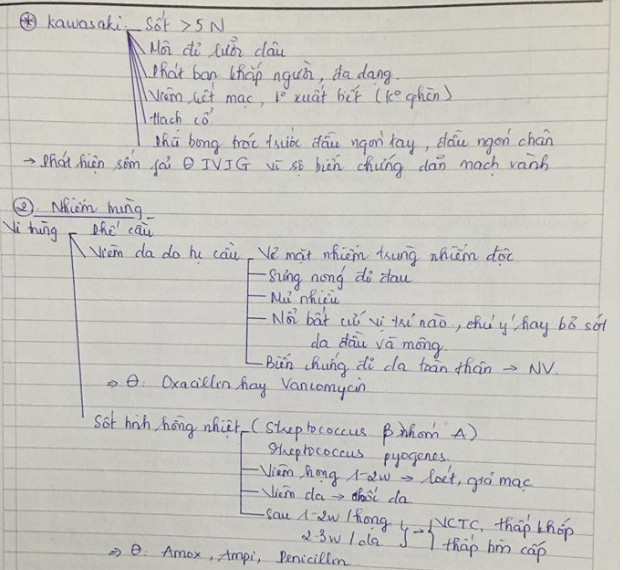 ⊛ Kawasaki - Sốt > 5N
Môi đỏ lưỡi dâu
Phát ban khắp người, đa dạng.
Viêm kết mạc, 1° xuất tiết (K° ghèn)
Hạch cổ
Phù bong tróc trước đầu ngón tay, đầu ngón chân
→ Phát hiện sớm fải Θ IVIG vì sẽ biến chứng dãn mạch vành
② Nhiễm trùng
Vi trùng - Phế cầu
Viêm da do tụ cầu - Vẻ mặt nhiễm trùng nhiễm độc
- Sưng nóng đỏ đau
- Mủ nhiều
- Nổi bất cứ vị trí nào, chú ý hay bỏ sót
da đầu và mông.
- Biến chứng đỏ da toàn thân → NV.
⇒ Θ: Oxacillin hay Vancomycin.
Sốt tinh hồng nhiệt - (Streptococcus β nhóm A)
Streptococcus pyogenes.
- Viêm họng 1-2w → loét, giả mạc
- Viêm da → chốc da
- Sau 1-2w / họng } → { VCTC, thấp khớp
2-3w / da } → { thấp tim cấp
⇒ Θ: Amox, Ampi, Penicillin.